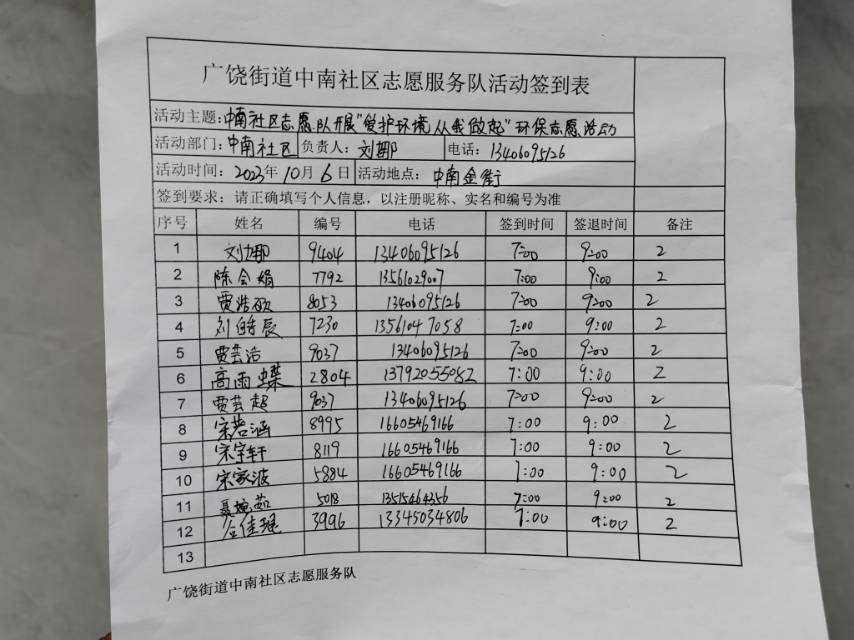 广饶街道中南社区志愿服务队活动签到表
活动主题:中南社区志愿队开展"爱护环境,从我做起"环保志愿活动
活动部门:中南社区 负责人:刘娜 电话:13406095126
活动时间:2023年10月6日 活动地点:中南金街
签到要求:请正确填写个人信息,以注册昵称、实名和编号为准
序号 姓名 编号 电话 签到时间 签退时间 备注
1 刘娜 9404 13406095126 7:00 9:00 2
2 陈会娟 7792 13561029007 7:00 9:00 2
3 贾浩 8053 13406095126 7:00 9:00 2
4 刘皓辰 7230 13561047058 7:00 9:00 2
5 贾芸洁 9037 13406095126 7:00 9:00 2
6 高雨蝶 2804 13792055082 7:00 9:00 2
7 贾芸起 9037 13406095126 7:00 9:00 2
8 宋若涵 8995 16605469166 7:00 9:00 2
9 宋宇轩 8119 16605469166 7:00 9:00 2
10 宋家波 5884 16605469166 7:00 9:00 2
11 聂婉茹 5018 13515464356 7:00 9:00 2
12 佳瑶 3996 13345034806 7:00 9:00 2
13
广饶街道中南社区志愿服务队